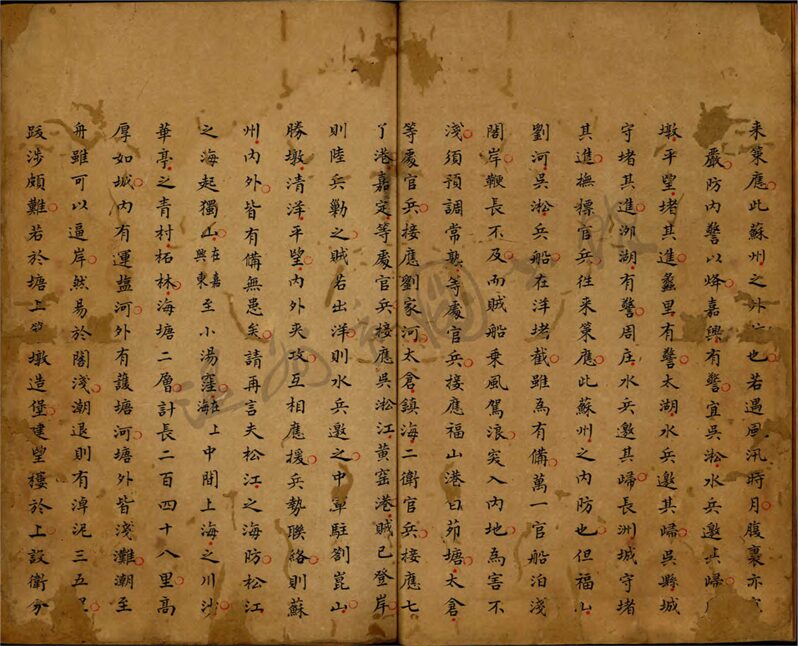 来策應此蘇州之外也若遇風汛時月腹裏亦
嚴防内警以烽嘉興有警宜吳淞水兵邀其歸
墩平望堵其進蠡里有警太湖水兵邀其歸吳縣城
守堵其進泖湖有警周庄水兵邀其歸長洲城守堵
其進撫標官兵徃来策應此蘇州之内防也但福山
劉河吳淞兵船在洋堵截雖為有備萬一官船泊淺
閣岸鞭長不及而賊船乗風駕浪突入内地為害不
淺須預調常熟等處官兵接應福山港白茆塘太倉
等處官兵接應劉家河太倉鎮海二衛官兵接應七
丫港嘉定等處官兵接應吳淞江黄窑港賊已登岸
則陸兵勦之賊若出洋則水兵邀之中軍駐劄崑山
勝墩清洋平望内外夹攻互相應援兵勢聯絡則蘇
州内外皆有備無患矣請再言夫松江之海防松江
之海起獨山在嘉興東至小湯窪在上海中間上海之川沙
華亭之青村柘林海塘二層計長二百四十八里高
厚如城内有運塩河外有護塘河塘外皆淺灘潮至
舟雖可以逼岸然易於閣淺潮退則有淖泥三五
跋涉頗難若於塘上墩造堡建望樓於上設衛分